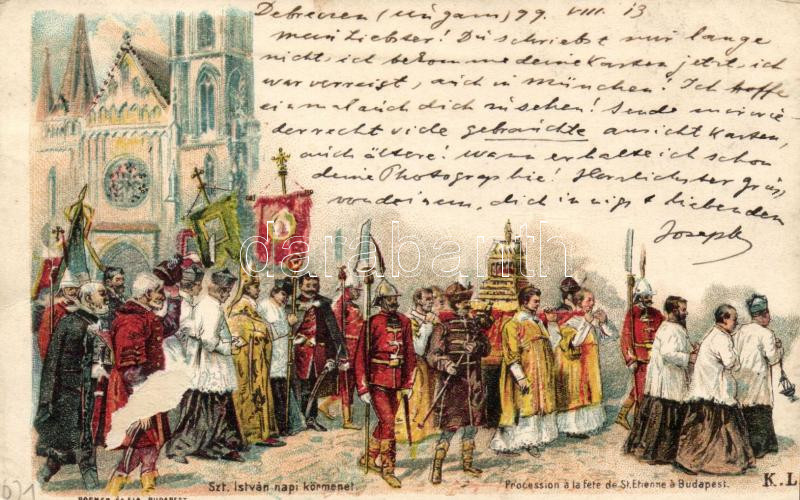 Debreczen (Ungarn) 99. VIII. 13
Mein Liebster! Du schriebst mir lange
nicht, ich bekomme deine Karten jetzt, ich
war verreist, auch in München! Ich hoffe
einmal auch dich zu sehen! Sende mir wie-
der recht viele gebrauchte ansicht Karten,
auch ältere! Wann erhalte ich schon
deine Photographie! Herzlichster Gruß
von deinem, dich innigst liebenden
Joseph
darabanth
Szt. István napi körmenet.
Procession à la fête de St. Etienne à Budapest.
K. L
BUDAPEST